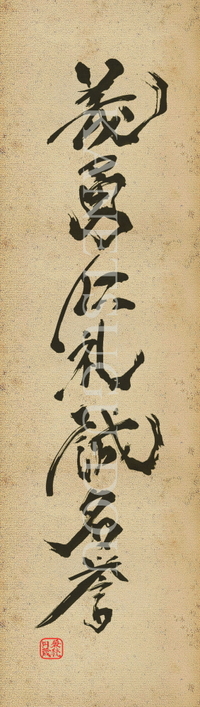 義勇仁礼誠名誉